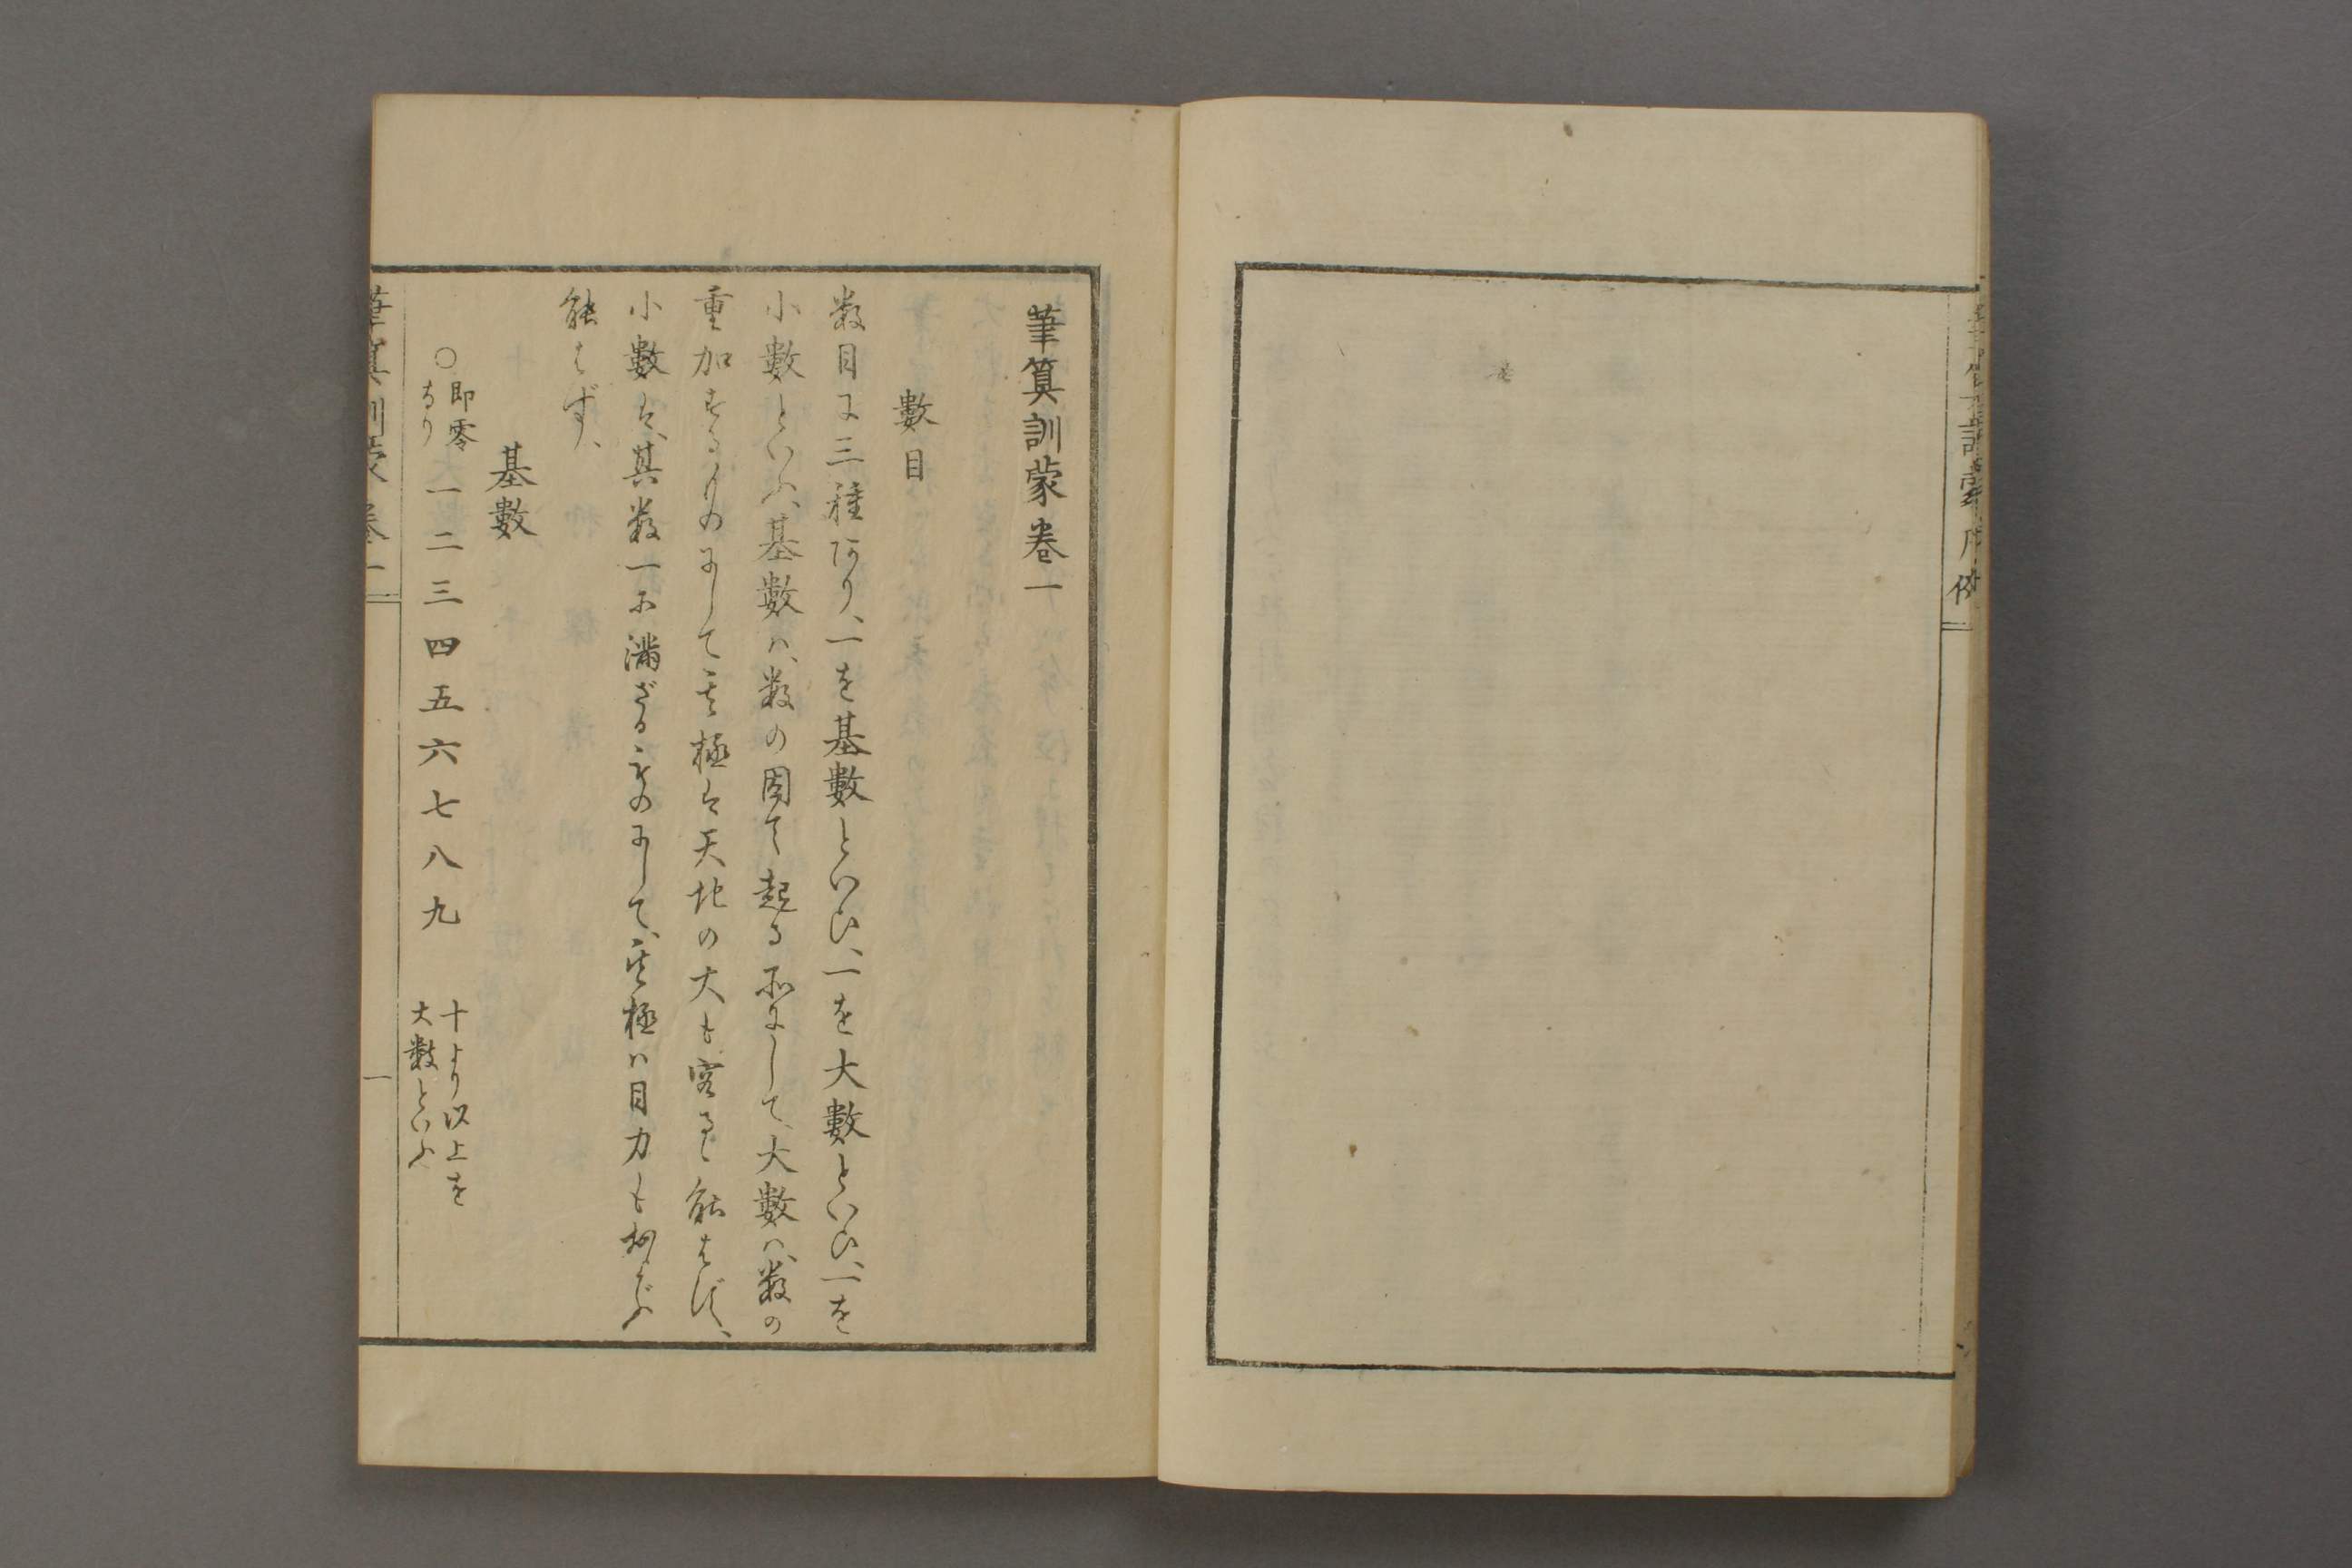 筆算訓蒙卷一
數目
数目に三種あり、一を基數といひ、一を大數といひ、一を
小數といふ、基數ハ、数の因て起る所にして、大數ハ、数の
重加するものにして其極は天地の大も容るゝ能はず、
小數は、其数一に満ざるものにして、其極ハ目力も及ぶ
能はず、
基數
○即零なり 一二三四五六七八九 十より以上を大数といふ
筆算訓蒙 卷一 一